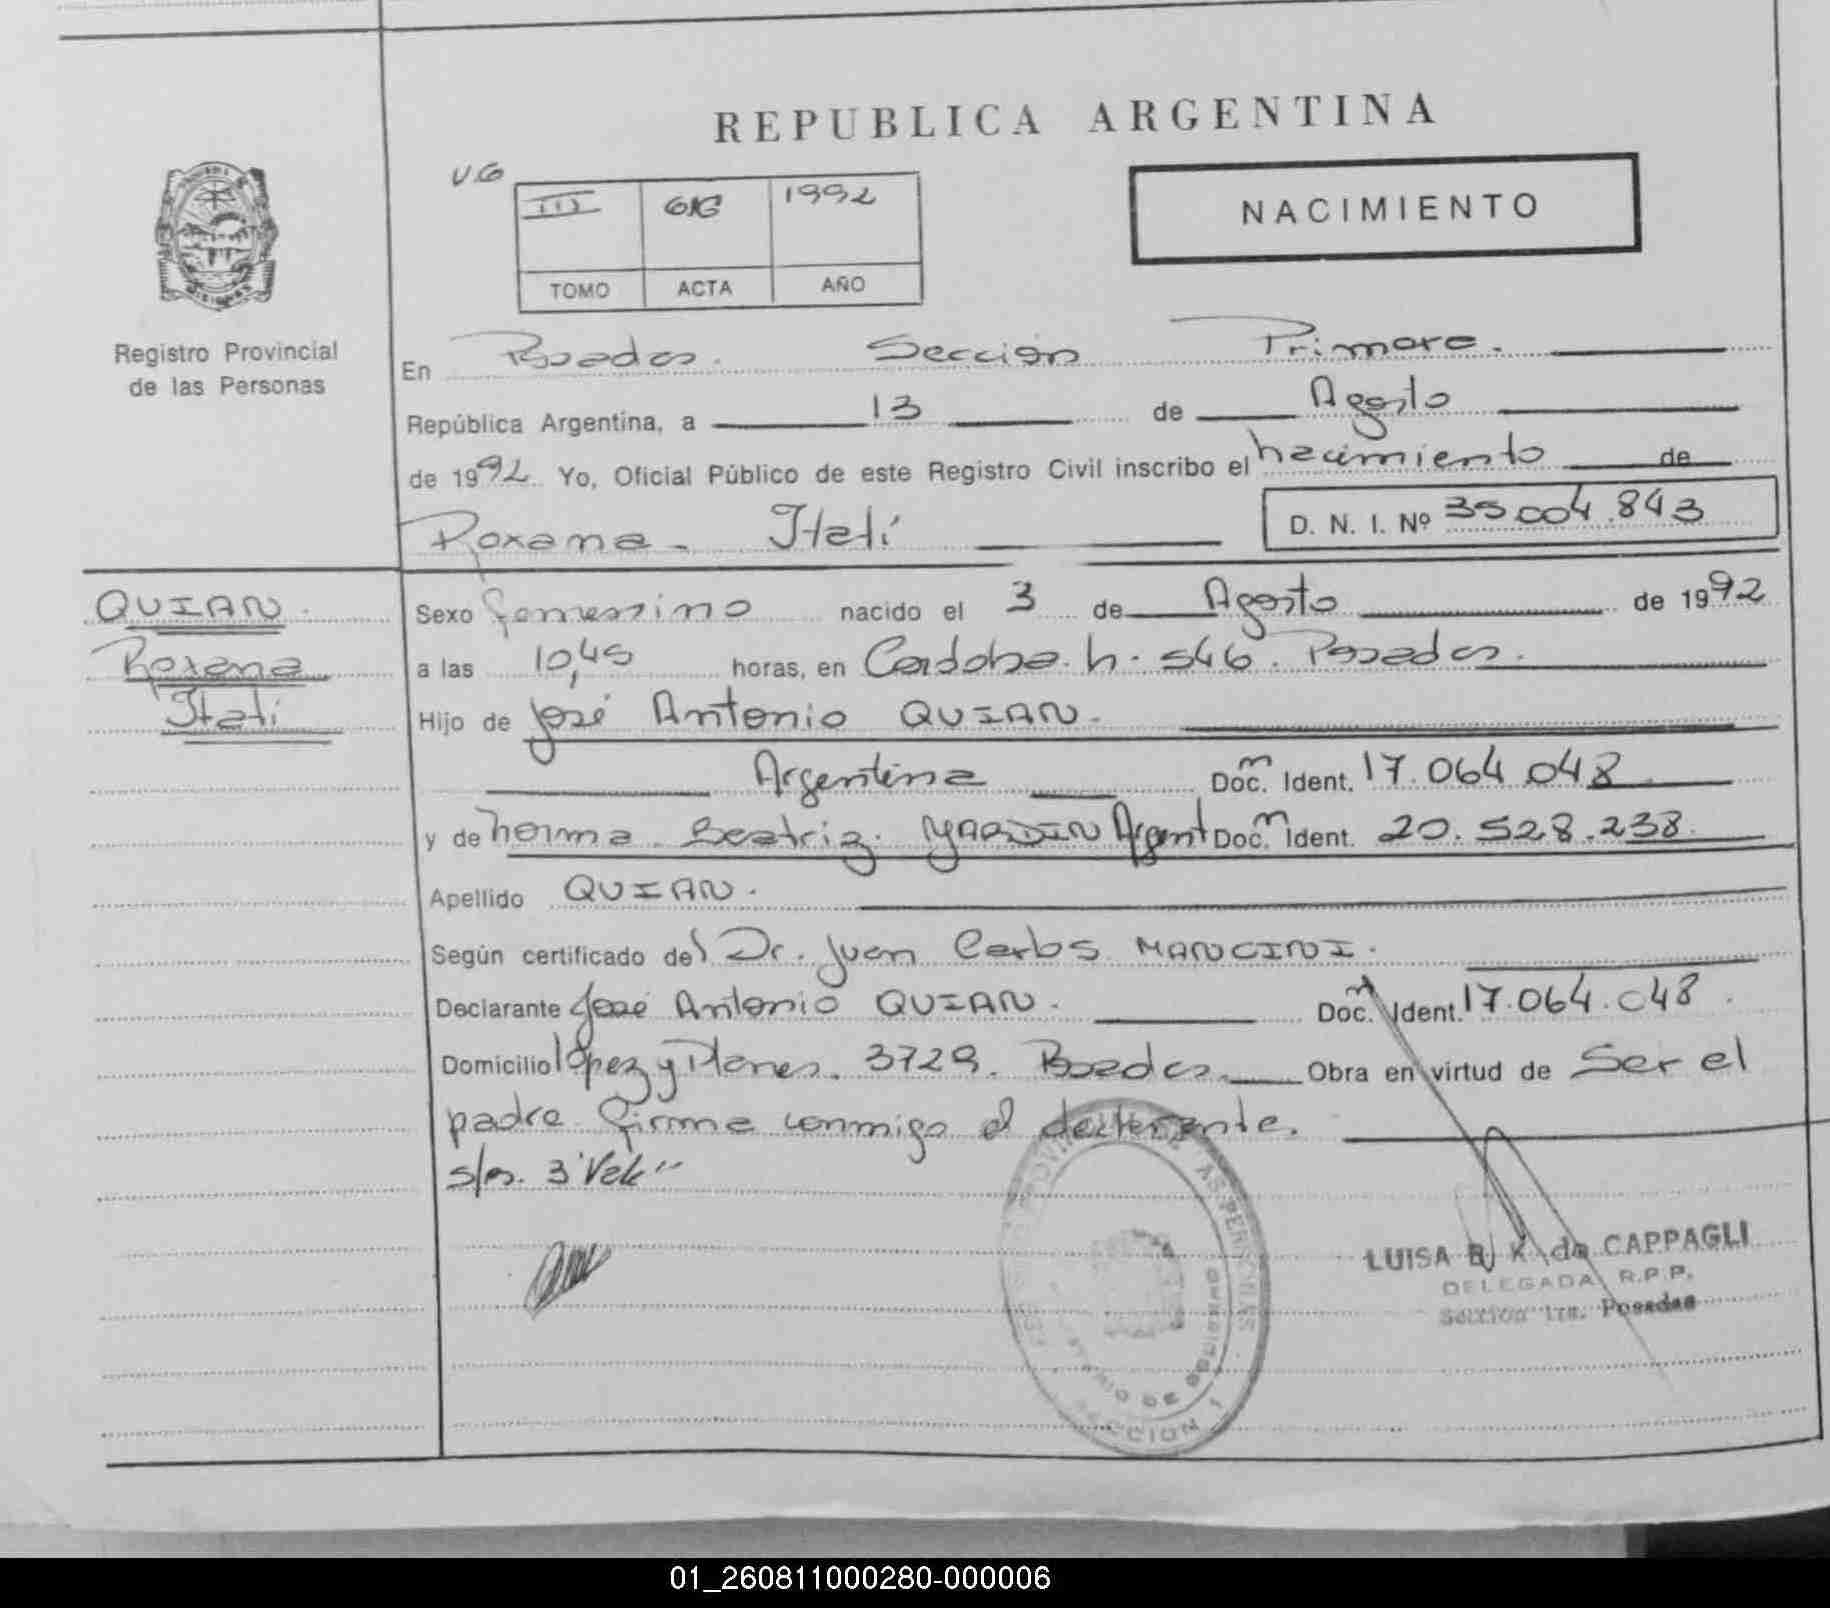 REPUBLICA ARGENTINA
V.G
III 616 1992
TOMO ACTA AÑO
NACIMIENTO
Registro Provincial
de las Personas
En Posadas. Sección Primera.
República Argentina, a 13 de Agosto
de 1992 Yo, Oficial Público de este Registro Civil inscribo el nacimiento de
Roxana Itatí
D. N. I. Nº 35.004.843
QUIAN.
Roxana
Itatí
Sexo femenino nacido el 3 de Agosto de 1992
a las 10,45 horas, en Cordoba. n. 546. Posadas.
Hijo de José Antonio QUIAN.
Argentina Doc. Ident. 17.064.048
y de Norma Beatriz. YARDIN Argent Doc. Ident. 20.528.238.
Apellido QUIAN.
Según certificado del Dr. Juan Carlos MANCINI.
Declarante José Antonio QUIAN. Doc. Ident. 17.064.048.
Domicilio lópez y Planes. 3729. Posadas. Obra en virtud de Ser el
padre firma conmigo el declarante.
LUISA B. K. de CAPPAGLI
DELEGADA R.P.P.
Sección 1ra. Posadas
SECCION 1
01_260811000280-000006